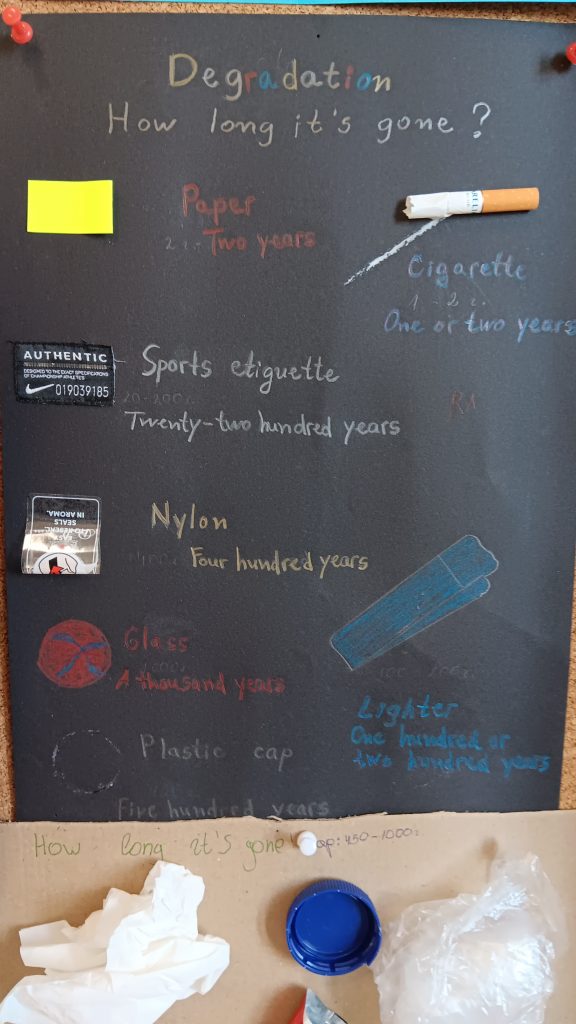 Degradation
How long it's gone?
Paper
2 г. Two years
Cigarette
1-2 г.
One or two years
AUTHENTIC
DESIGNED TO THE EXACT SPECIFICATIONS
OF CHAMPIONSHIP ATHLETES
019039185
Sports etiguette
20-200г.
Twenty-two hundred years
EASY
SEALS
IN AROMA.
Nylon
Four hundred years
Glass
A thousand years
Lighter
One hundred or
two hundred years
Plastic cap
Five hundred years
How long it's gone
450-1000г